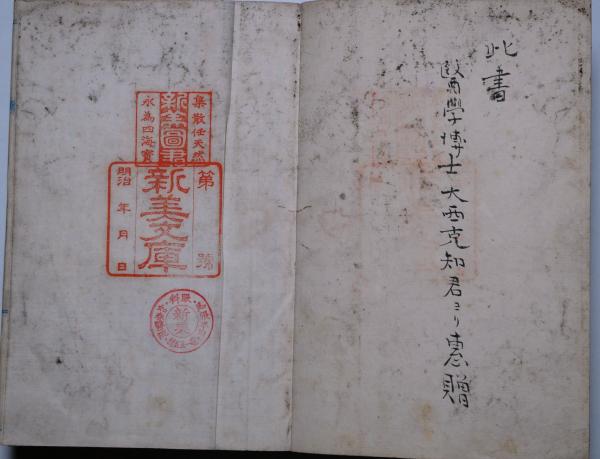 此書
醫學博士大西克知君ヨリ恵贈
集散任天然
新美圖書
永為四海寶
第 號
新美文庫
明治 年 月 日
眼科
新美